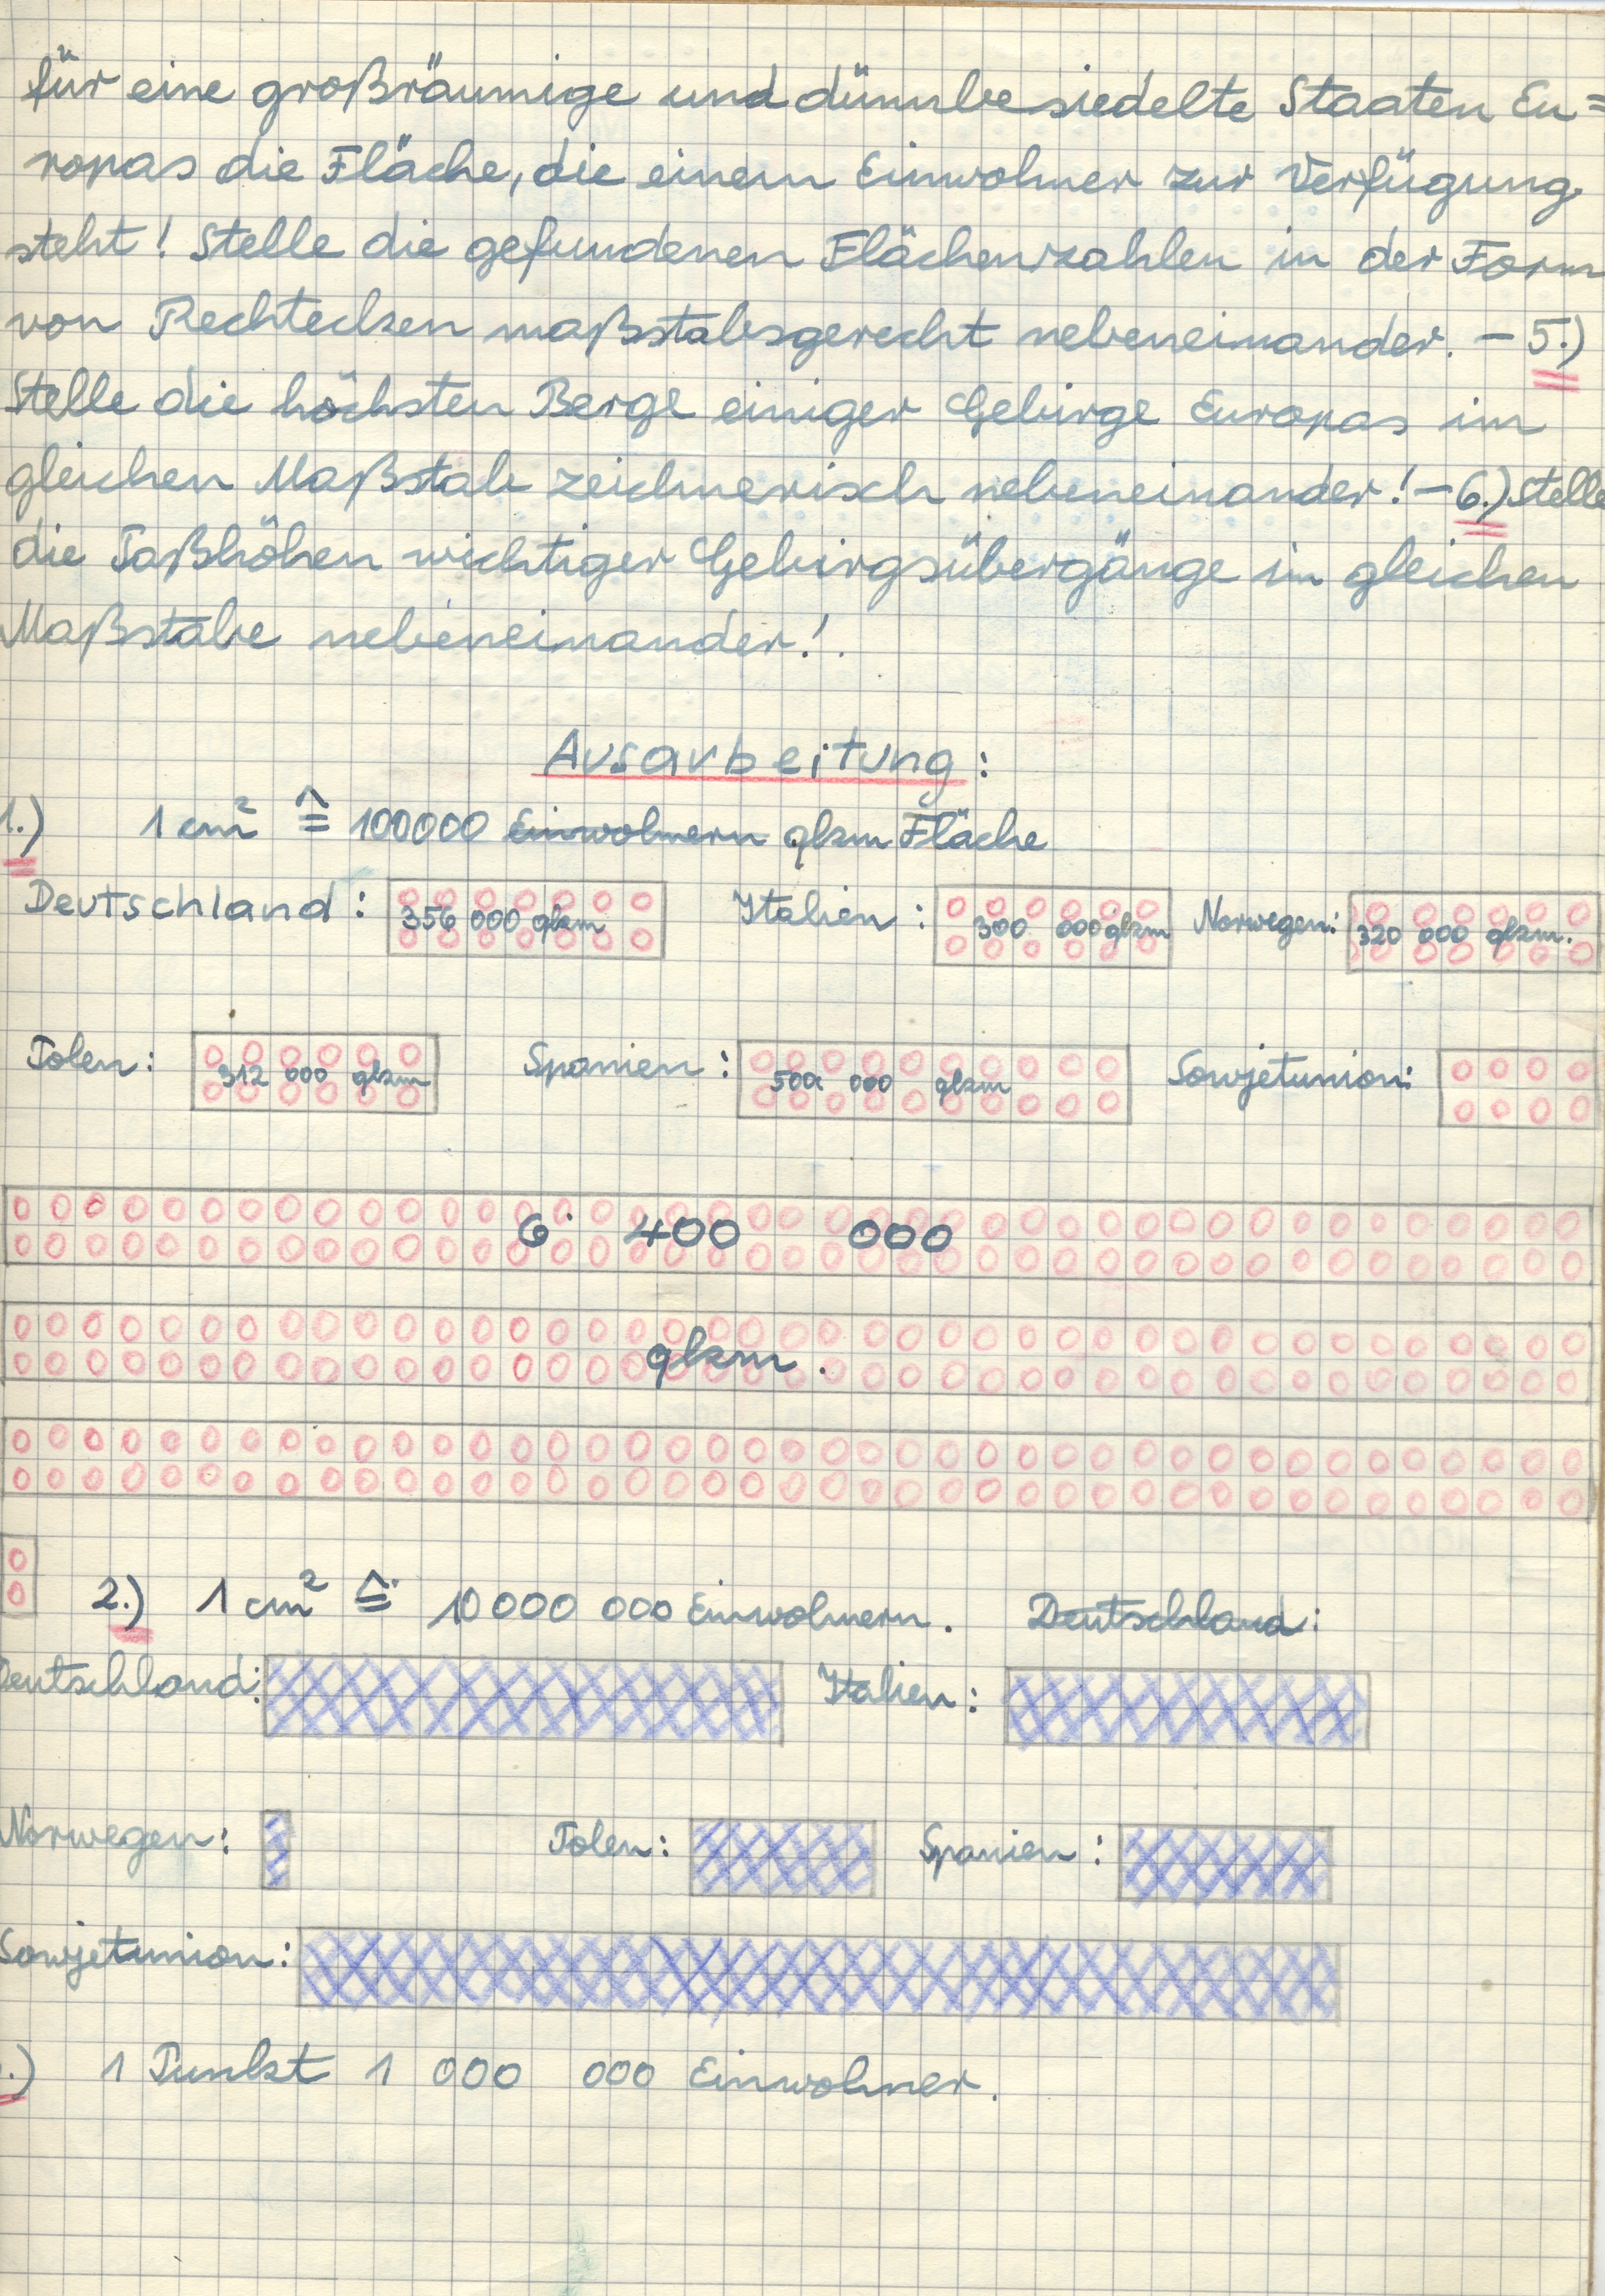 für eine großräumige und dünnbesiedelte Staaten Eu=
ropas die Fläche, die einem Einwohner zur Verfügung
steht! Stelle die gefundenen Flächenzahlen in der Form
von Rechtecken maßstabsgerecht nebeneinander. – 5.)
Stelle die höchsten Berge einiger Gebirge Europas im
gleichen Maßstab zeichnerisch nebeneinander! – 6.) Stelle
die Paßhöhen wichtiger Gebirgsübergänge im gleichen
Maßstabe nebeneinander!
Ausarbeitung:
1.) 1 cm² ≙ 100000 Einwohnern qkm Fläche
Deutschland: 356 000 qkm Italien: 300 000 qkm Norwegen: 320 000 qkm.
Polen: 312 000 qkm Spanien: 500 000 qkm Sowjetunion:
6 400 000
qkm.
2.) 1 cm² ≙ 10 000 000 Einwohnern. Deutschland:
Deutschland: Italien:
Norwegen: Polen: Spanien:
Sowjetunion:
.) 1 Punkt 1 000 000 Einwohner.